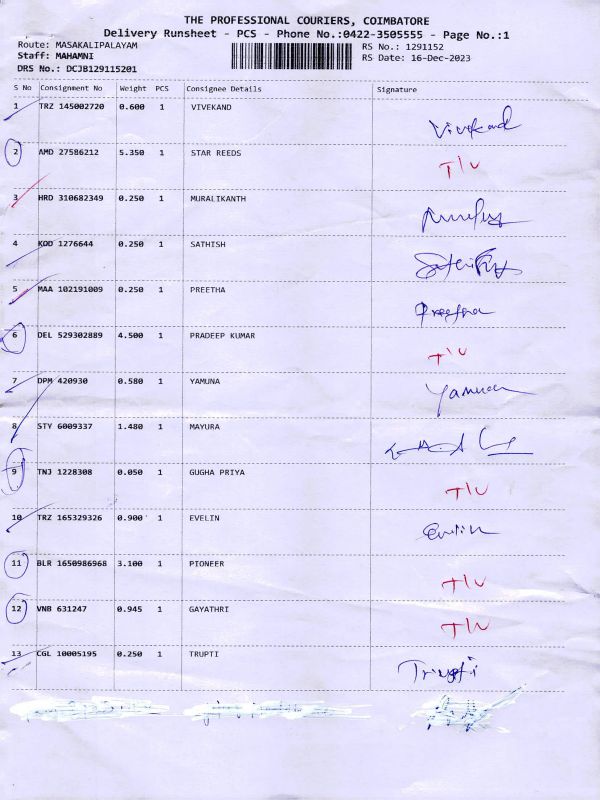 THE PROFESSIONAL COURIERS, COIMBATORE
Delivery Runsheet - PCS - Phone No.:0422-3505555 - Page No.:1
Route: MASAKALIPALAYAM RS No.: 1291152
Staff: MAHAMNI RS Date: 16-Dec-2023
DRS No.: DCJB129115201
S No Consignment No Weight PCS Consignee Details Signature
1 TRZ 145002720 0.600 1 VIVEKAND Vivekand
2 AMD 27586212 5.350 1 STAR REEDS T/U
3 HRD 310682349 0.250 1 MURALIKANTH
4 KOD 1276644 0.250 1 SATHISH
5 MAA 102191009 0.250 1 PREETHA Preetha
6 DEL 529302889 4.500 1 PRADEEP KUMAR T/U
7 DPM 420930 0.580 1 YAMUNA Yamuna
8 STY 6009337 1.480 1 MAYURA
9 TNJ 1228308 0.050 1 GUGHA PRIYA T/U
10 TRZ 165329326 0.900 1 EVELIN Evelin
11 BLR 1650986968 3.100 1 PIONEER T/U
12 VNB 631247 0.945 1 GAYATHRI T/U
13 CGL 10005195 0.250 1 TRUPTI Trupti